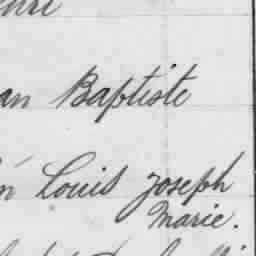 an Baptiste
n Louis Joseph
Marie.